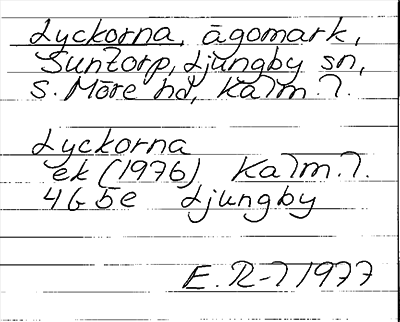 Lyckorna, ägomark,
Suntorp, Ljungby sn,
S. Möre hd, Kalm. l.
Lyckorna
ek (1976) Kalm. l.
4G 5e Ljungby
E. R-l 1977